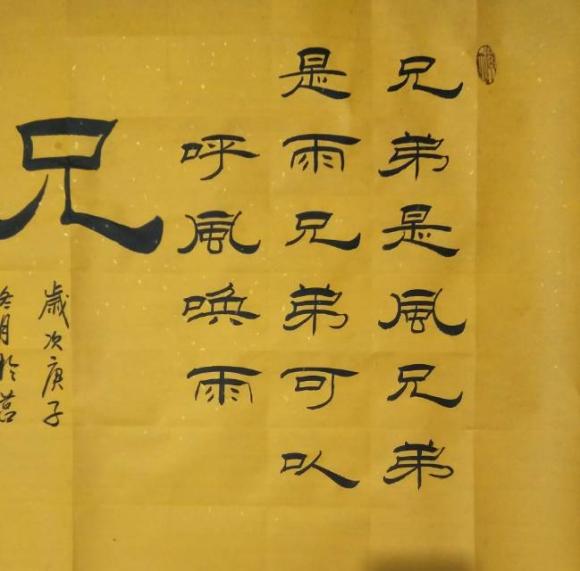 兄弟是風兄弟
是雨兄弟可以
呼風喚雨
兄
歲次庚子
冬月於莒